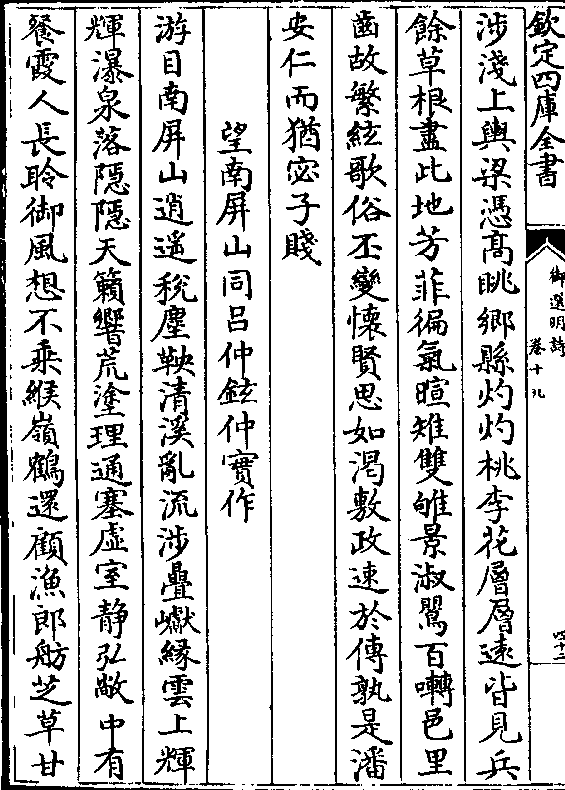 欽定四庫全書
御選明詩
卷十九
四十二
涉淺上輿梁憑高眺鄉縣灼灼桃李花層層遠皆見兵
餘草根盡此地芳菲徧氣暄雉雙雊景淑鶯百囀邑里
齒故繁絃歌俗丕變懷賢思如渴敷政速於傳孰是潘
安仁而猶宓子賤
望南屏山同呂仲鉉仲實作
游目南屏山逍遥稅塵鞅清溪亂流涉疊巘緣雲上輝
輝瀑泉落隱隱天籟響荒塗理通塞虚室静弘敞中有
餐霞人長聆御風想不乗緱嶺鶴還顧漁郎舫芝草甘